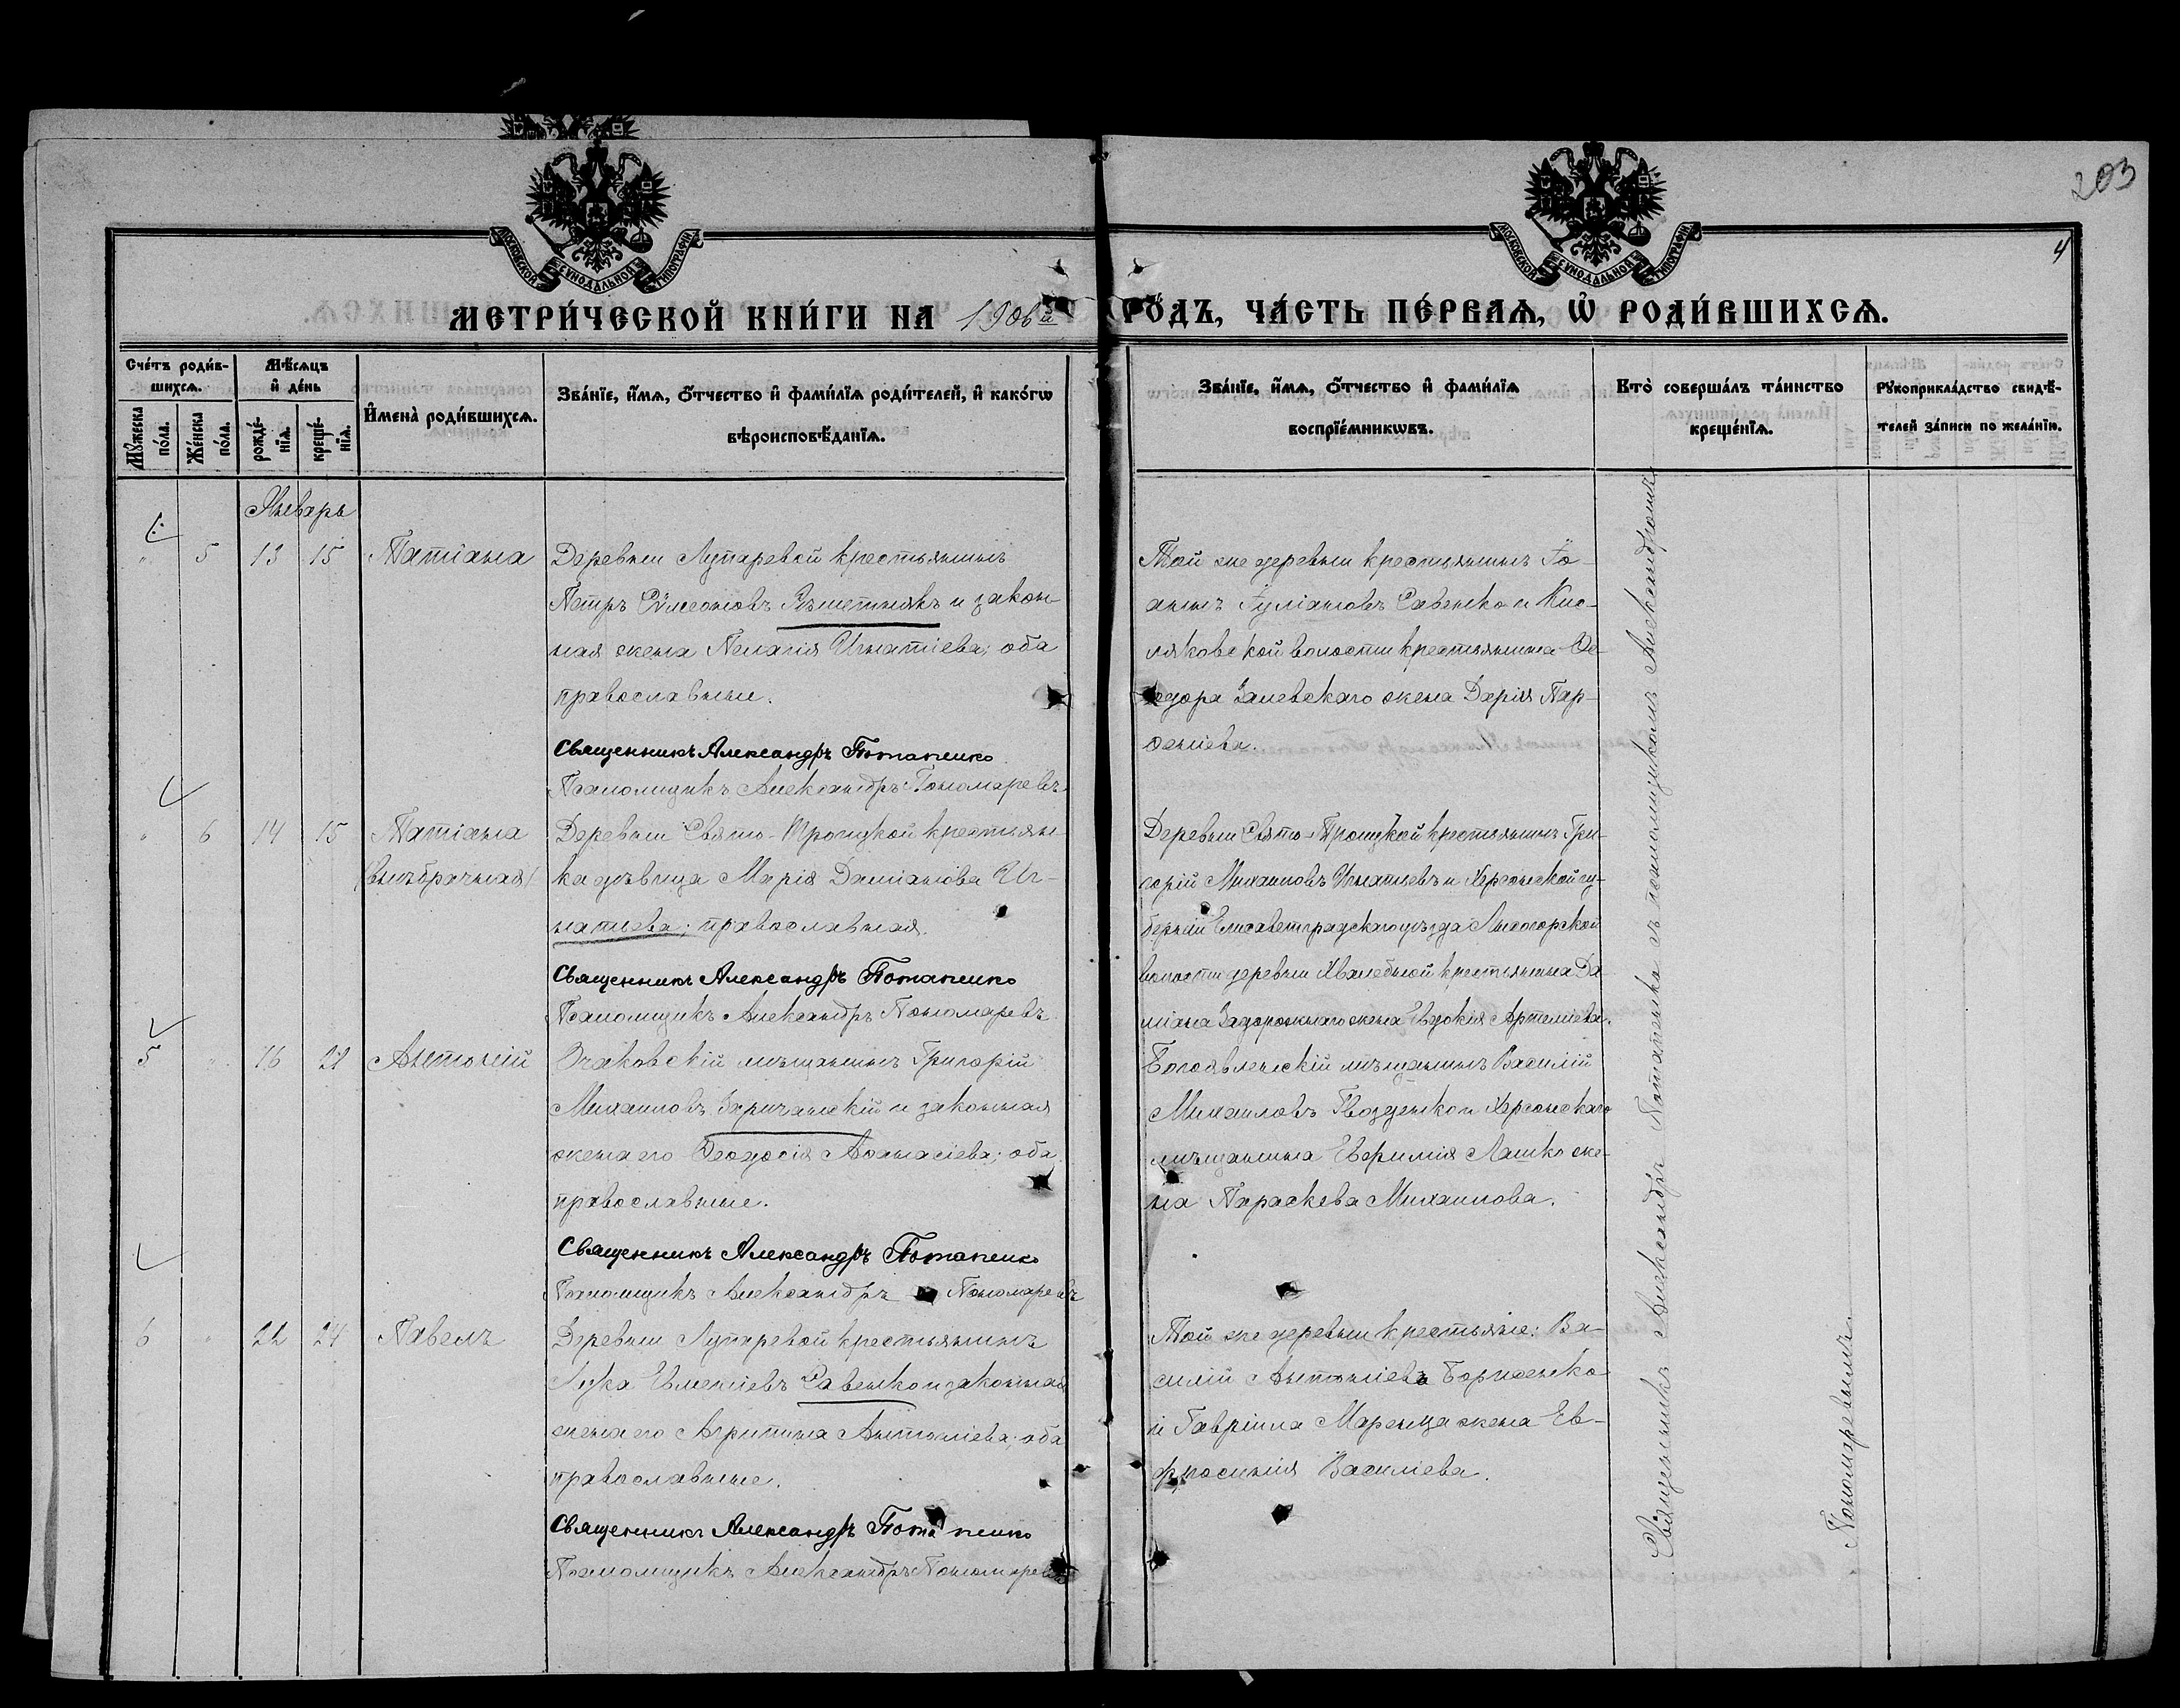 203
4
МОСКОВСКОЙ СѴНОДАЛЬНОЙ ТИПОГРАФІИ
МОСКОВСКОЙ СѴНОДАЛЬНОЙ ТИПОГРАФІИ
МЕТРИ́ЧЕСКОЙ КНИ́ГИ НА 1906й ГО́ДЪ, ЧА́СТЬ ПЕ́РВАѦ, Ѡ҆ РОДИ́ВШИХСѦ.
Сче́тъ роди́в-
шихсѧ.
Мꙋ́жеска по́ла.
Же́нска по́ла.
Мѣ́сѧцъ
и҆ де́нь
рожде́-
нїѧ.
креще́-
нїѧ.
И҆мена̀ роди́вшихсѧ.
Зва́нїе, и҆́мѧ, ѻ҆́тчество и҆ фами́лїѧ роди́телей, и҆ како́гѡ
вѣроисповѣ́данїѧ.
Зва́нїе, и҆́мѧ, ѻ҆́тчество и҆ фами́лїѧ
воспрїе́мникѡвъ.
Кто̀ соверша́лъ та́инство
креще́нїѧ.
Рꙋкоприкла́дство свидѣ́-
телей за́писи по жела́нїю.
Январь
" 5 13 15 Татіана
Деревни Лупаревой крестьянинъ
Петръ Сѵмеоновъ Рѣшетнякъ и закон-
ная жена Пелагія Игнатіева; оба
православные.
Священникъ Александръ Потапенко
Псаломщикъ Александръ Пономаревъ
Той же деревни крестьянинъ Іо-
аннъ Іуліановъ Савенко и Кис-
ляковской волости крестьянина Ѳе-
одора Залевскаго жена Дарія Пар-
ѳеніева.
" 6 14 15 Татіана
(внѣбрачная)
Деревни Свято-Троицкой крестьян-
ка дѣвица Марія Даміанова Иг-
натиева; православная.
Священникъ Александръ Потапенко
Псаломщикъ Александръ Пономаревъ
Деревни Свято-Троицкой крестьянинъ Гри-
горій Михаиловъ Игнатиевъ и Херсонской гу-
берніи Елисаветградскаго уѣзда Лысогорской
волости деревни Хвалебной крестьянина Да-
міана Задорожнаго жена Евдокія Артеміева.
5 " 16 21 Антоній
Очаковскій мѣщанинъ Григорій
Михаиловъ Заричанскій и законная
жена его Ѳеодосія Аѳанасіева; оба
православные.
Священникъ Александръ Потапенко
Псаломщикъ Александръ Пономаревъ
Богоявленскій мѣщанинъ Василій
Михаиловъ Гвозденко и Херсонскаго
мѣщанина Евфимія Лашко же-
на Параскева Михаилова.
6 " 22 24 Павелъ
Деревни Лупаревой крестьянинъ
Лука Евменіевъ Савенко и законная
жена его Агрипина Антоніева; оба
православные.
Священникъ Александръ Потапенко
Псаломщикъ Александръ Пономаревъ
Той же деревни крестьяне: Ва-
силій Антоніевъ Борисенко
и Гавріила Маренца жена Ев-
фросинія Василіева.
Священникъ Александръ Потапенко съ псаломщикомъ Александромъ
Пономаревымъ.